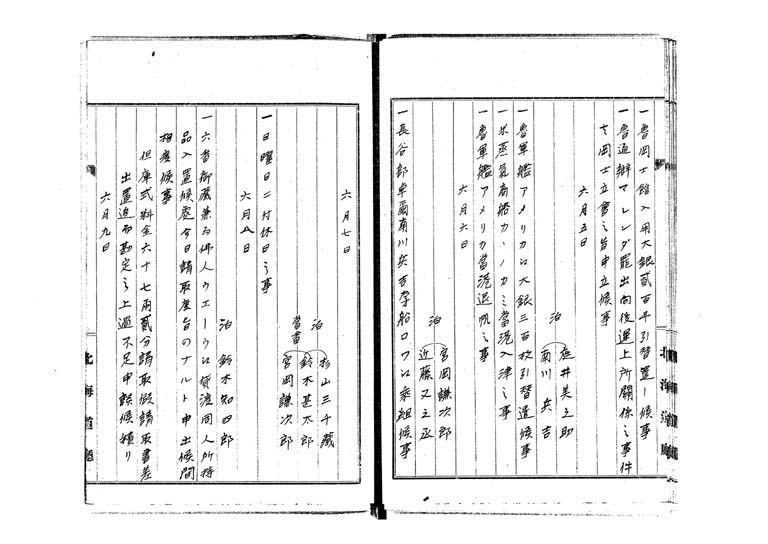 一魯岡士館入用大銀貳百千引替置候事
一魯通辦マレンダ罷出向後運上所關係之事件
そ岡士立會之旨申立候事
六月五日
泊
庵井美之助
南川兵吉
一魯軍艦アメリカ江大銀三百枚引替遣候事
一米蒸氣商船カーノカミ當港入津之事
一魯軍艦アメリカ當港退帆之事
六月六日
泊
宮岡謙次郎
近藤又之丞
一長谷部卓爾南川兵吉孛船ロワ江乘組候事
六月七日
泊
杉山三千藏
鈴木甚太郎
當畫
宮岡謙次郎
一日曜日ニ付休日之事
六月八日
泊 鈴木知四郎
一六番御藏兼而佛人ウエーウ江貸渡同人所持
品入置候處今日請取度旨のナルト申出候間
相渡候事
但庫式料金六十七兩貳分請取假請取書差
出置追而勘定之上過不足申談候積り
六月九日
北海道廳
北海道廳